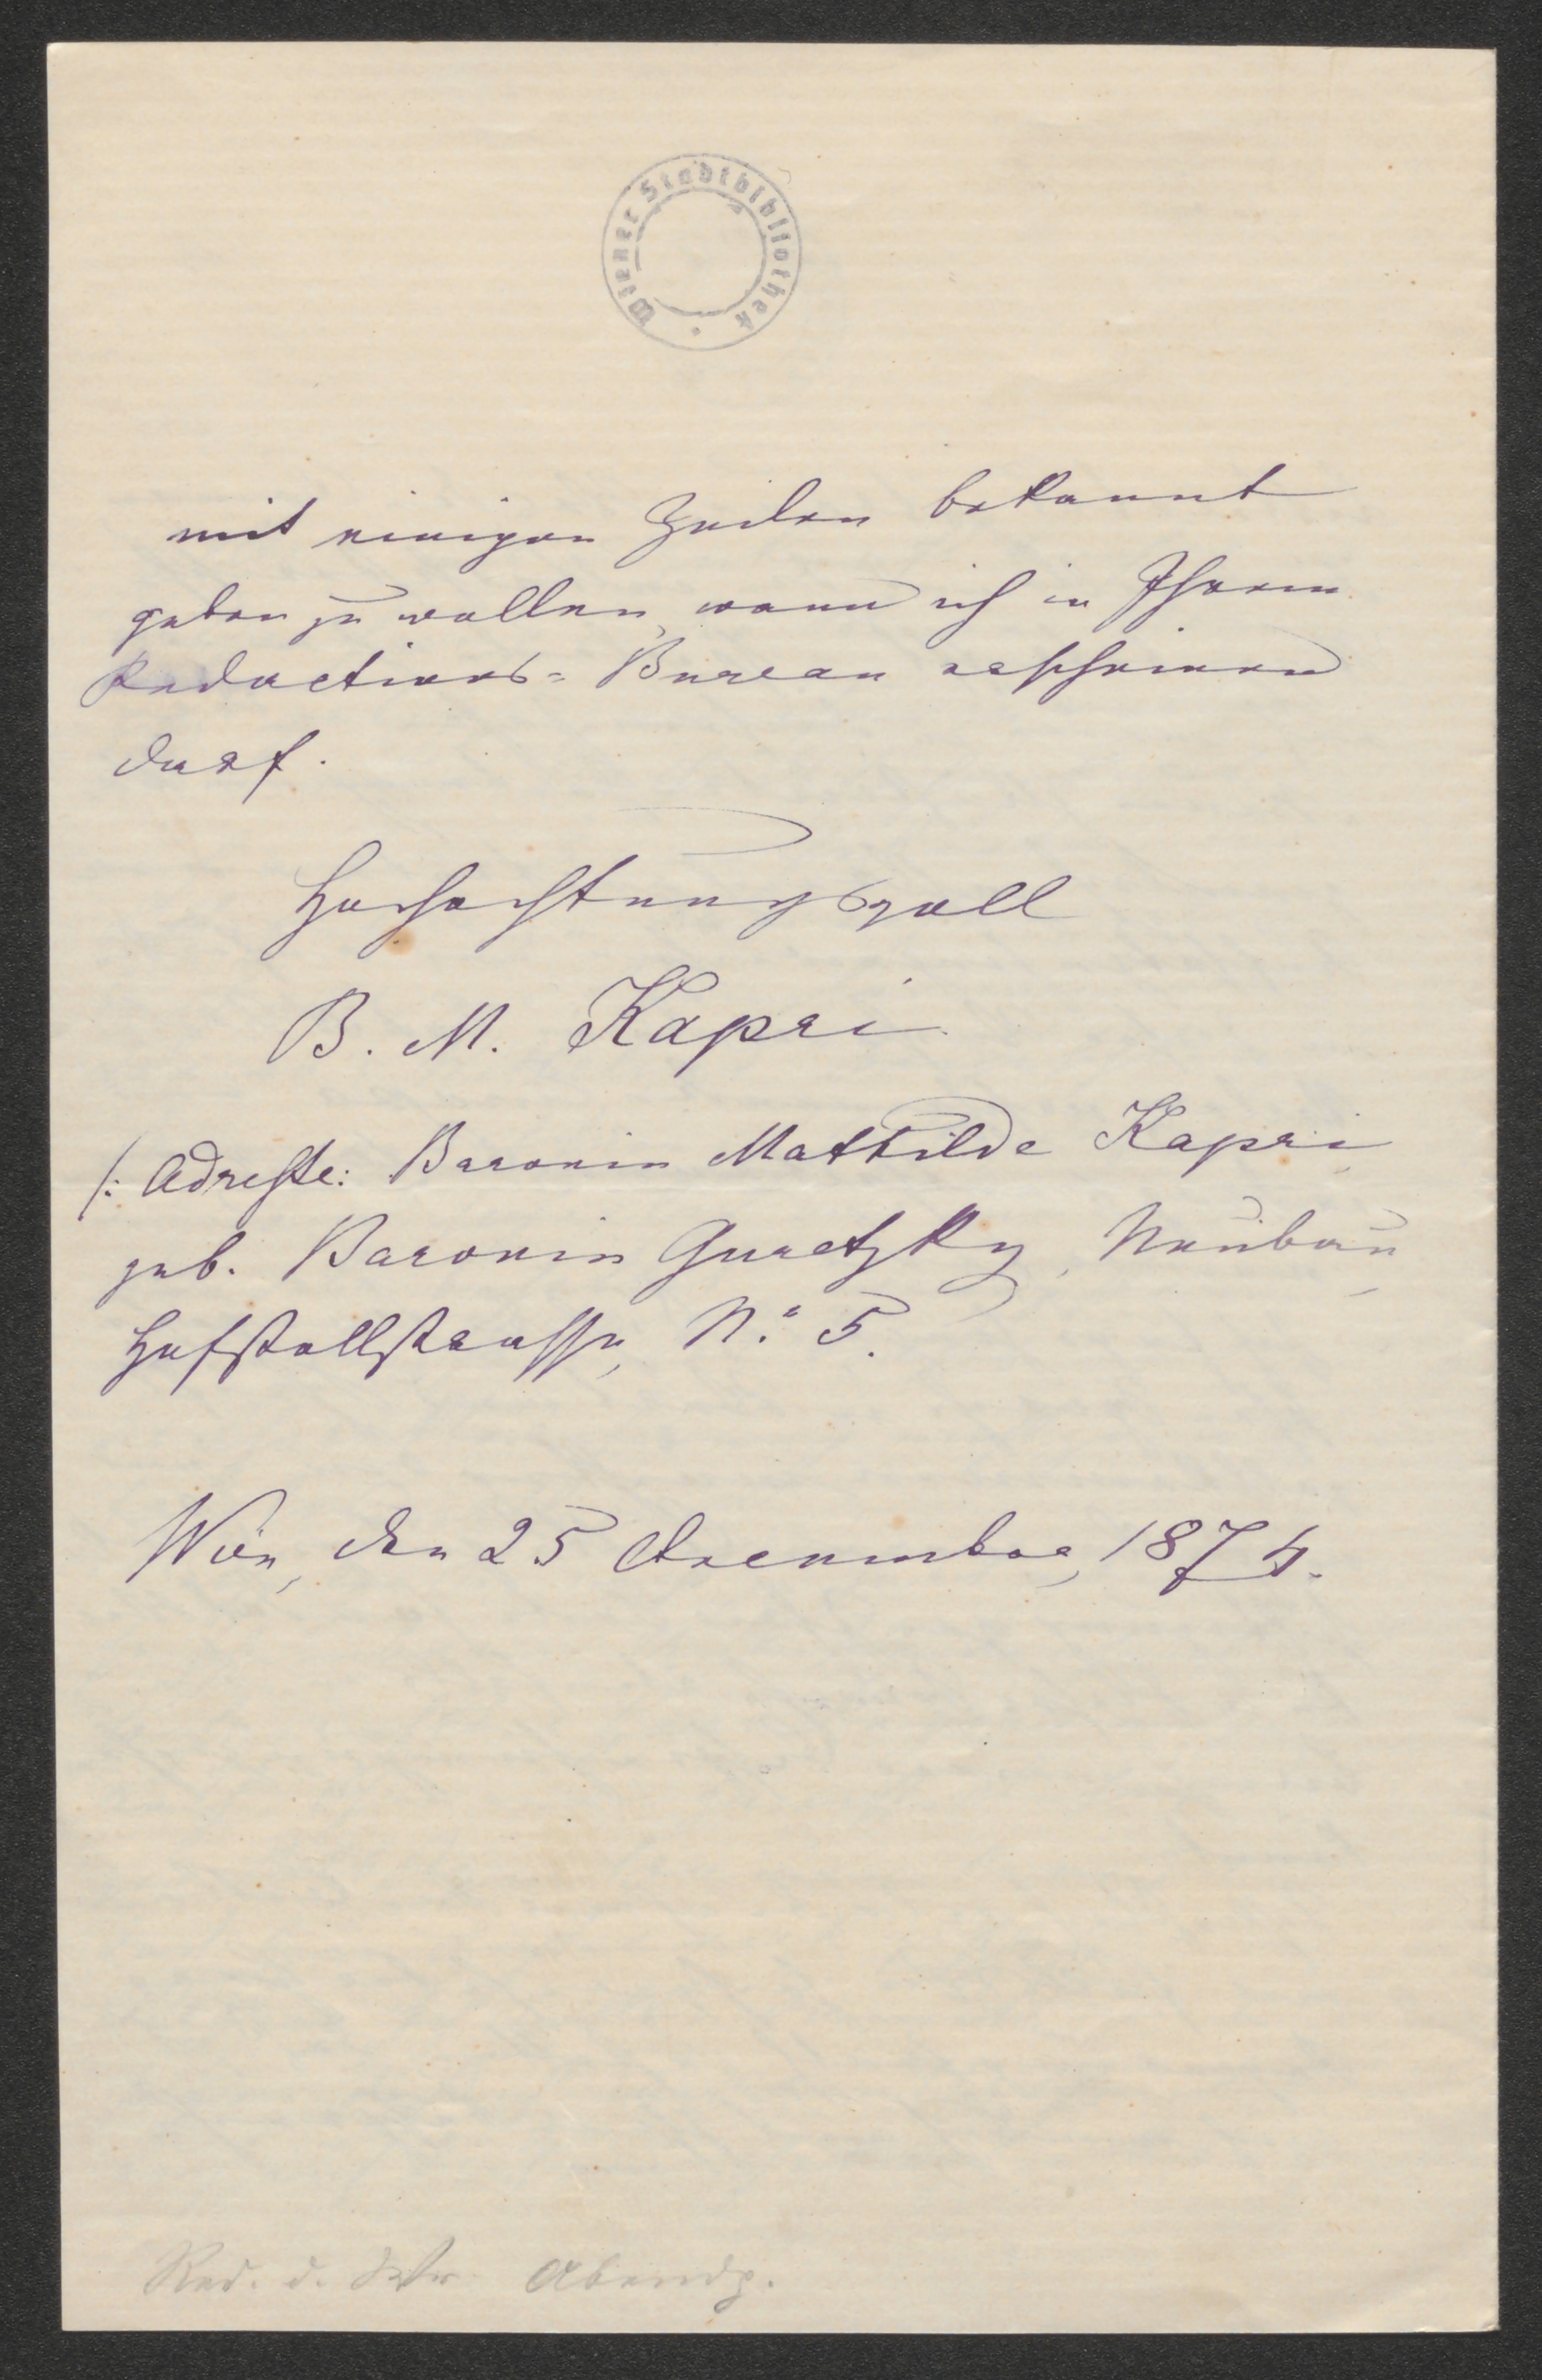 Wiener Stadtbibliothek
mit einigen Zeilen bekannt
geben zu wollen, wann ich in Ihrem
Redactions-Bureau erscheinen
darf.
Hochachtungsvoll
B. M. Kapri
/: Adresse: Baronin Mathilde Kapri
geb. Baronin Guretzky, Neubau,
Hofstallstrasse, No: 5.
Wien, den 25 December, 1874.
Red. d. Wr. Abendp.